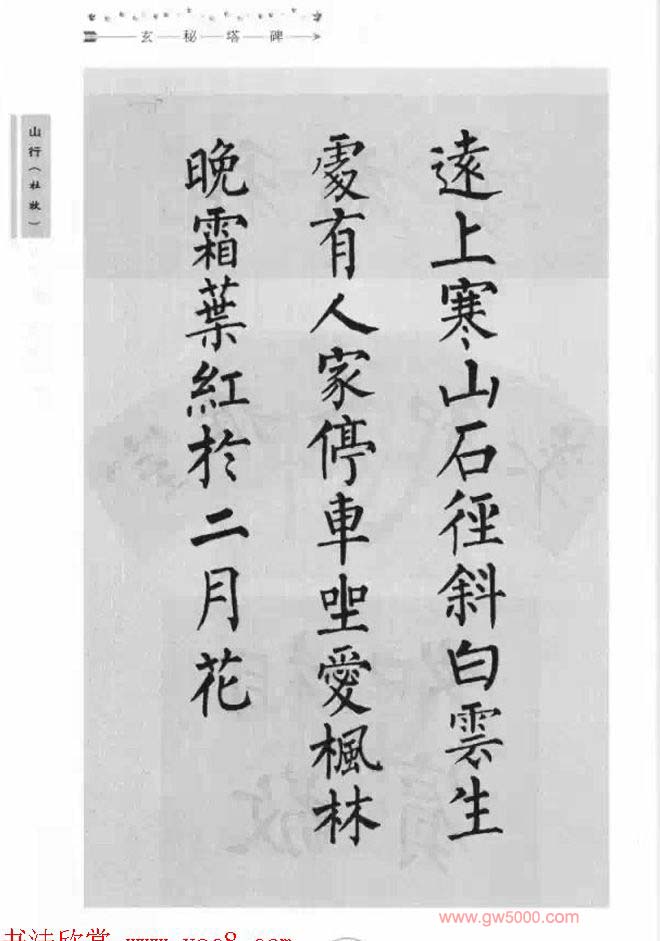 玄秘塔碑
山行（杜牧）
遠上寒山石徑斜白雲生
處有人家停車坐愛楓林
晚霜葉紅於二月花
www.gw5000.com
书法欣赏 www.yac8.com